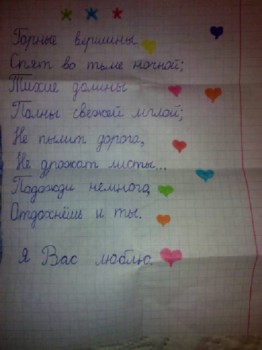 * * *
Горные вершины
Спят во тьме ночной;
Тихие долины
Полны свежей мглой;
Не пылит дорога,
Не дрожат листы...
Подожди немного,
Отдохнёшь и ты.
Я Вас люблю.